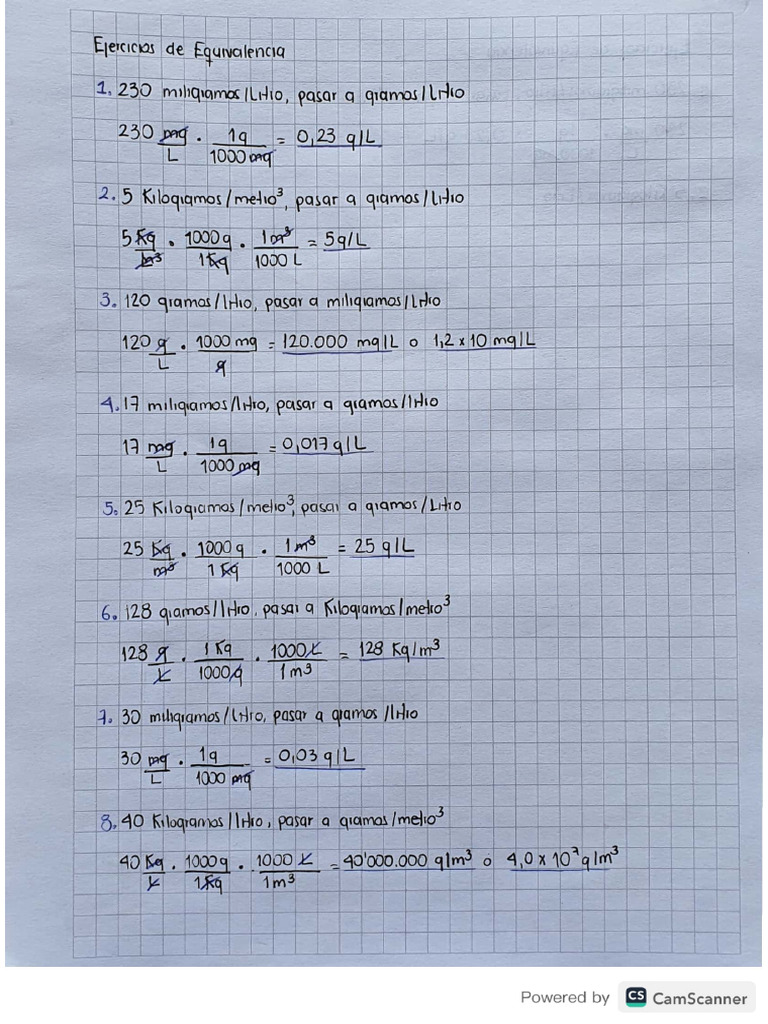 Ejercicios de Equivalencia
1. 230 miligramos/Litro, pasar a gramos/Litro
230 mg/L · 1g/1000 mg = 0,23 g/L
2. 5 Kilogramos/metro³, pasar a gramos/Litro
5 Kg/m³ · 1000g/1Kg · 1m³/1000 L = 5g/L
3. 120 gramos/litro, pasar a miligramos/Litro
120 g/L · 1000 mg/g = 120.000 mg/L o 1,2 x 10 mg/L
4. 17 miligramos/litro, pasar a gramos/litro
17 mg/L · 1g/1000 mg = 0,017 g/L
5. 25 Kilogramos/metro³, pasar a gramos/Litro
25 Kg/m³ · 1000 g/1 Kg · 1m³/1000 L = 25 g/L
6. 128 gramos/litro, pasar a Kilogramos/metro³
128 g/L · 1 Kg/1000g · 1000L/1m³ = 128 Kg/m³
7. 30 miligramos/Litro, pasar a gramos/litro
30 mg/L · 1g/1000 mg = 0,03 g/L
8. 40 Kilogramos/litro, pasar a gramos/metro³
40 Kg/L · 1000g/1Kg · 1000 L/1m³ = 40'000.000 g/m³ o 4,0 x 10⁷ g/m³
Powered by CS CamScanner